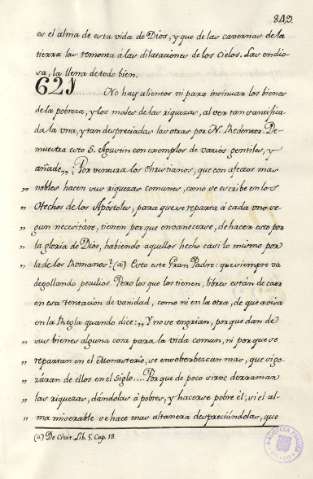 849.
es el alma de esta vida de Dios, y que de las cavernas de la
tierra las remonta a las dilataciones de los Cielos. Las endio
sa, la llena de todo bien.
621 No hay alientos ni para insinuar los bienes
de la pobreza, y los males de las riquezas, al ver tan santifica
da la una, y tan despreciadas las otras por N. Redentor. De
muestra esto S. Agustin con exemplos de varios gentiles, y
añade,, Por ventura los christianos, que con afecto mas
,, noble hacen sus riquezas comunes, como se escribe en los
,, Hechos de los Apóstoles, para que se reparta á cada uno se-
,, gun necesitáre, tienen por que envanecerse, de hacer esto por
,, la gloria de Dios, habiendo aquellos hecho casi lo mismo por
,, la de los Romanos? (a) Esto este Gran Padre: que siempre va
degollando peculios. Pero los que los tienen, libres están de caer
en esta tentacion de vanidad, como ni en la otra, de que avisa
en la Regla quando dice:,, Y no se engrian, porque dan de
,, sus bienes alguna cosa para la vida comun, ni porque se
,, reparten en el Monasterio, se ensoberbezcan mas, que si go-
,, záran de ellos en el siglo.... Por que de poco sirve derramar
,, las riquezas, dándolas á pobres, y hacerse pobre él, si el al-
,, ma miserable se hace mas altanera despreciándolas, que
(a) De Civit. Lib. 5. Cap. 18.